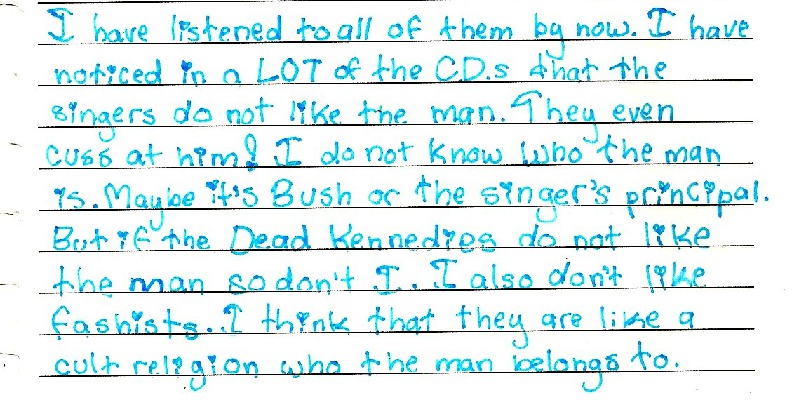 I have listened to all of them by now. I have
noticed in a LOT of the CD.s that the
singers do not like the man. They even
cuss at him! I do not know who the man
is. Maybe it's Bush or the singer's principal.
But if the Dead Kennedies do not like
the man so don't I. I also don't like
fashists. I think that they are like a
cult religion who the man belongs to.